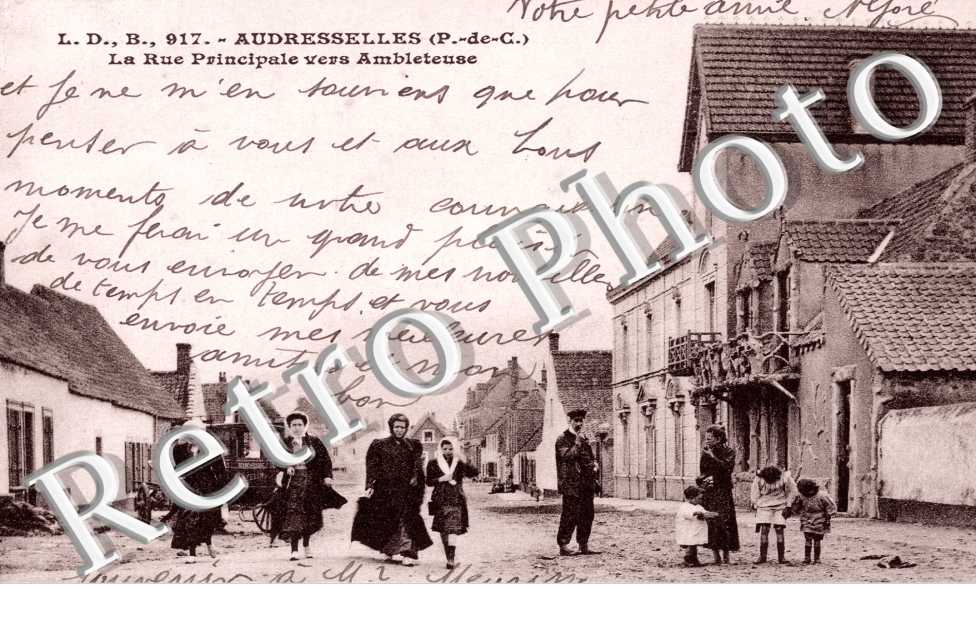 Votre petite amie
L. D., B., 917. - AUDRESSELLES (P.-de-C.)
La Rue Principale vers Ambleteuse
et Je ne m'en souviens que pour
penser à vous et aux bons
moments de notre
Je me ferai un grand plaisir
de vous envoyer de mes nouvelles
de temps en temps et vous
envoie mes meilleures
amitiés
bon
souvenir à Mr
Retro Photo